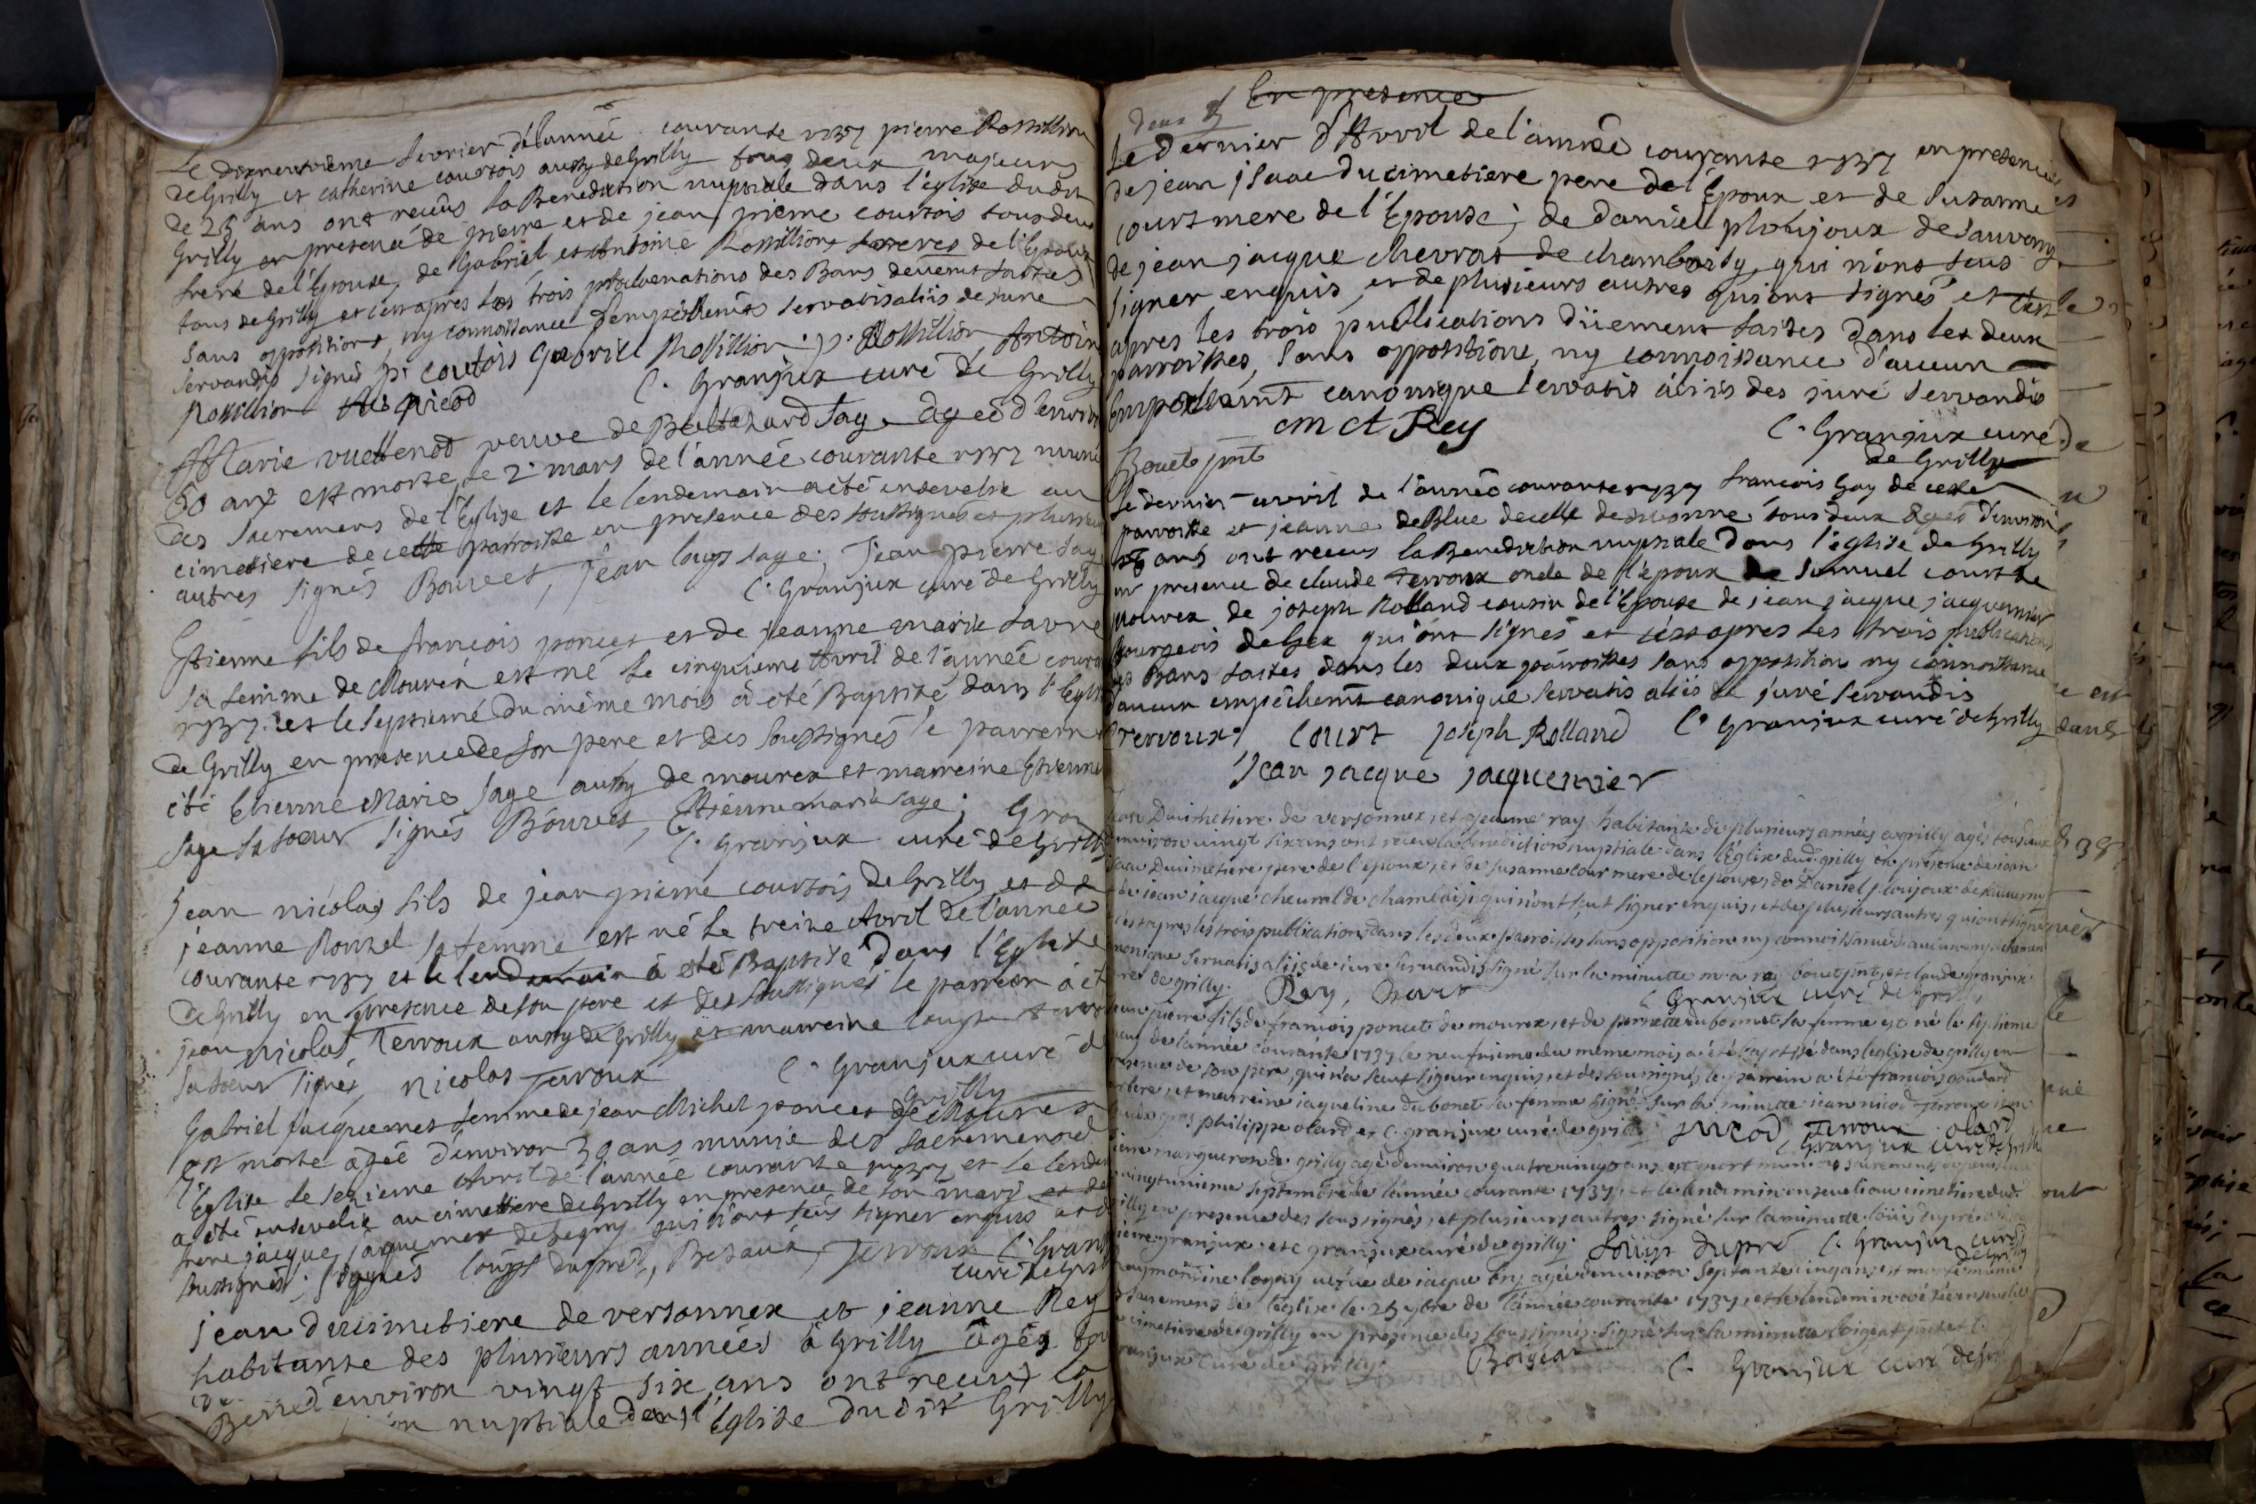 Le dixneuvieme fevrier de l'année courante 1737 pierre Rossillion
de Grilly et catherine courtois aussy de Grilly tous deux majeurs
de 25 ans ont reçeus la Benediction nuptiale dans l'église dudit
Grilly en presence de pierre et de jean pierre courtois tous deux
freres de l'Epouse, de Gabriel et Antoine Rossillion freres de l'Epoux
tous de Grilly et c'est apres les trois proclamations des Bans deüemt faittes
sans opposition ny connoissance d'empêchemt servatis aliis de jure
servandis signés pi courtois Gabriel Rossillion p. Rossillion Antoine
Rossillion nicod C. Granjux curé de Grilly
Marie vuettenod veuve de Baltezard Sage agée d'environ
60 ans est morte le 2e mars de l'année courante 1737 munie
des sacremens de l'Eglise et le lendemain a été ensevelie au
cimetiere de cette parroisse en presence des soussignés et plusieurs
autres signés Bouvet, jean louys sage, Jean pierre sage
C. Granjux curé de Grilly
Etienne fils de françois poncet et de jeanne marie favre
sa femme de Mourex est né le cinquieme Avril de l'année courante
1737 et le septieme du même mois a été Baptisé dans l'Eglise
de Grilly en presence de son pere et des soussignés le parrein a
été Etienne Marie Sage aussy de mourex et marreine Etienne
Sage sa soeur signés Bouvet, Etienne marie sage;
C. Granjux curé de Grilly
jean nicolas fils de jean pierre courtois de Grilly et de
jeanne Rouzel sa femme est né le treize Avril de l'année
courante 1737 et le lendemain a été Baptisé dans l'Eglise
de Grilly en presence de son pere et des soussignés le parrein a été
jean nicolas Terroux aussy de Grilly et marreine
sa soeur signés nicolas Terroux C. Granjux curé de
Grilly
Gabriel jacquemet femme de jean Michel poncet de Mourex
est morte agée d'environ 30 ans munie des sacremens de
l'Eglise le sezieme Avril de l'année courante 1737 et le lendemain
a été ensevelie au cimettiere de Grilly en presence de son mary et de
frere jacque jacquemet de segny qui n'ont seus signer enquis et des
soussignés; signés louys dupré, Terroux C. Granjux
curé de Grilly
jean ducimetiere de versonnex et jeanne Rey
habitante des plusieurs années à Grilly agés tous
d'environ vingt six ans ont receus la
nuptiale dans l'Eglise dudit Grilly
En presence
Le dernier d'Avril de l'année courante 1737 en presence
de jean jsaac ducimetiere pere de l'Epoux et de Susanne
court mere de l'Epouse; de daniel ploujoux de sauverny
de jean jacque chevrat de chambesy, qui n'ont seus
signer enquis, et de plusieurs autres qui ont signés et c'est
apres les trois publications düement faites dans les deux
parroisses, sans opposition, ny connoissance d'aucun
empechemt canonique servatis aliis des juré servandis
m A Rey C. Granjux curé
Bouet pnt de Grilly
Le dernier avril de l'année courante 1737 francois Gay de cette
parroisse et jeanne deblue de celle de divonne tous deux agés d'environ
26 ans ont receus la Benediction nuptiale dans l'église de Grilly
en presence de claude Terroux oncle de l'époux de Samuel court de
mourex de joseph Rolland cousin de l'Epouse de jean jacque jacquemier
bourgeois de Gex qui ont signés et c'est apres les trois publications
des Bans faites dans les deux parroisses sans opposition ny connoissance
d'aucun empêchemt canonique servatis aliis de juré servandis
Terroux Court joseph Rolland C. Granjux curé de Grilly
Jean jacque jacquemier
Ducimetiere de versonnex, et jeanne ray habitante de plusieurs années a grilly agés tous deux
d'environ vingt six ans ont receu la benediction nuptiale dans l'Eglise dud. grilly en presence de jean
isaac Ducimetiere pere de l'epoux, et de susanne cour mere de l'epouse, de Daniel ploujoux de sauverny
de jean jacque cheurat de chambaisi qui n'ont seut signer enquis, et de plusieurs autres qui ont signé
c'est apres les trois publications dans les deux parroisses sans opposition ny connoissance d'aucun empechement
canonique servatis aliis de jure servandis signé sur la minutte m a rey bouet pnt, et claude granjux
curé de grilly. Rey, Bouet C Granjux curé de Grilly
jean pierre fils de francois poncet de mourex, et de pernette dubonnet sa femme est né le septieme
de l'année courante 1737 le neufvieme du meme mois a été baptisé dans l'eglise de grilly en
presence de son pere, qui n'a seut signer enquis, et des soussignés, le parrein a été francois goudard
et marreine jaqueline dubonet sa femme signé sur la minutte jean nicod Terroux
philippe olard et C. granjux curé de grilly jnicod, Terroux olard
C Granjux curé de Grilly
margueron de grilly agé d'environ quatrevingt ans est mort muni des sacremens
vingtunieme septembre de l'année courante 1737, et le lendemain enseveli au cimetiere dud.
grilly en presence des soussignés, et plusieurs autres signé sur la minutte loüis dupré
pierre granjux, et C granjux curé de grilly. Loüis dupré C. Granjux curé
de Grilly
veuve de jaque agée d'environ septante cinq ans est morte munie
des sacremens de l'eglise le 25 7bre de l'année courante 1737, et le lendemain a été ensevelie
cimetiere de grilly en presence des soussignés signé sur la minutte
granjux curé de grilly. C. Granjux curé de Grilly